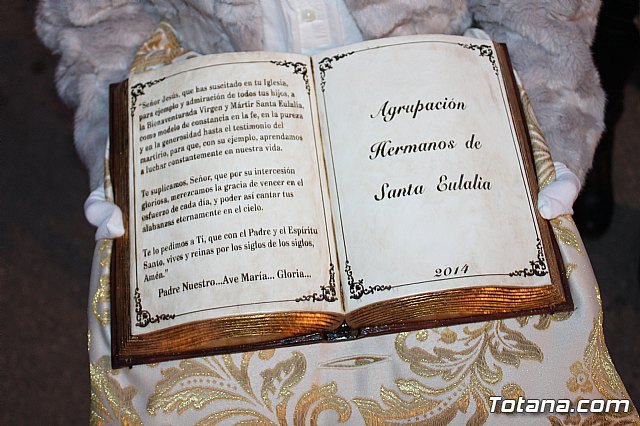 "Señor Jesús, que has suscitado en tu Iglesia,
para ejemplo y admiración de todos tus hijos, a
la Bienaventurada Virgen y Mártir Santa Eulalia,
como modelo de constancia en la fe, en la pureza
y en la generosidad hasta el testimonio del
martirio, para que, con su ejemplo, aprendamos
a luchar constantemente en nuestra vida.
Te suplicamos, Señor, que por su intercesión
gloriosa, merezcamos la gracia de vencer en el
esfuerzo de cada día, y poder así cantar tus
alabanzas eternamente en el cielo.
Te lo pedimos a Ti, que con el Padre y el Espíritu
Santo, vives y reinas por los siglos de los siglos,
Amén."
Padre Nuestro...Ave María... Gloria...
Agrupación
Hermanos de
Santa Eulalia
2014
Totana.com